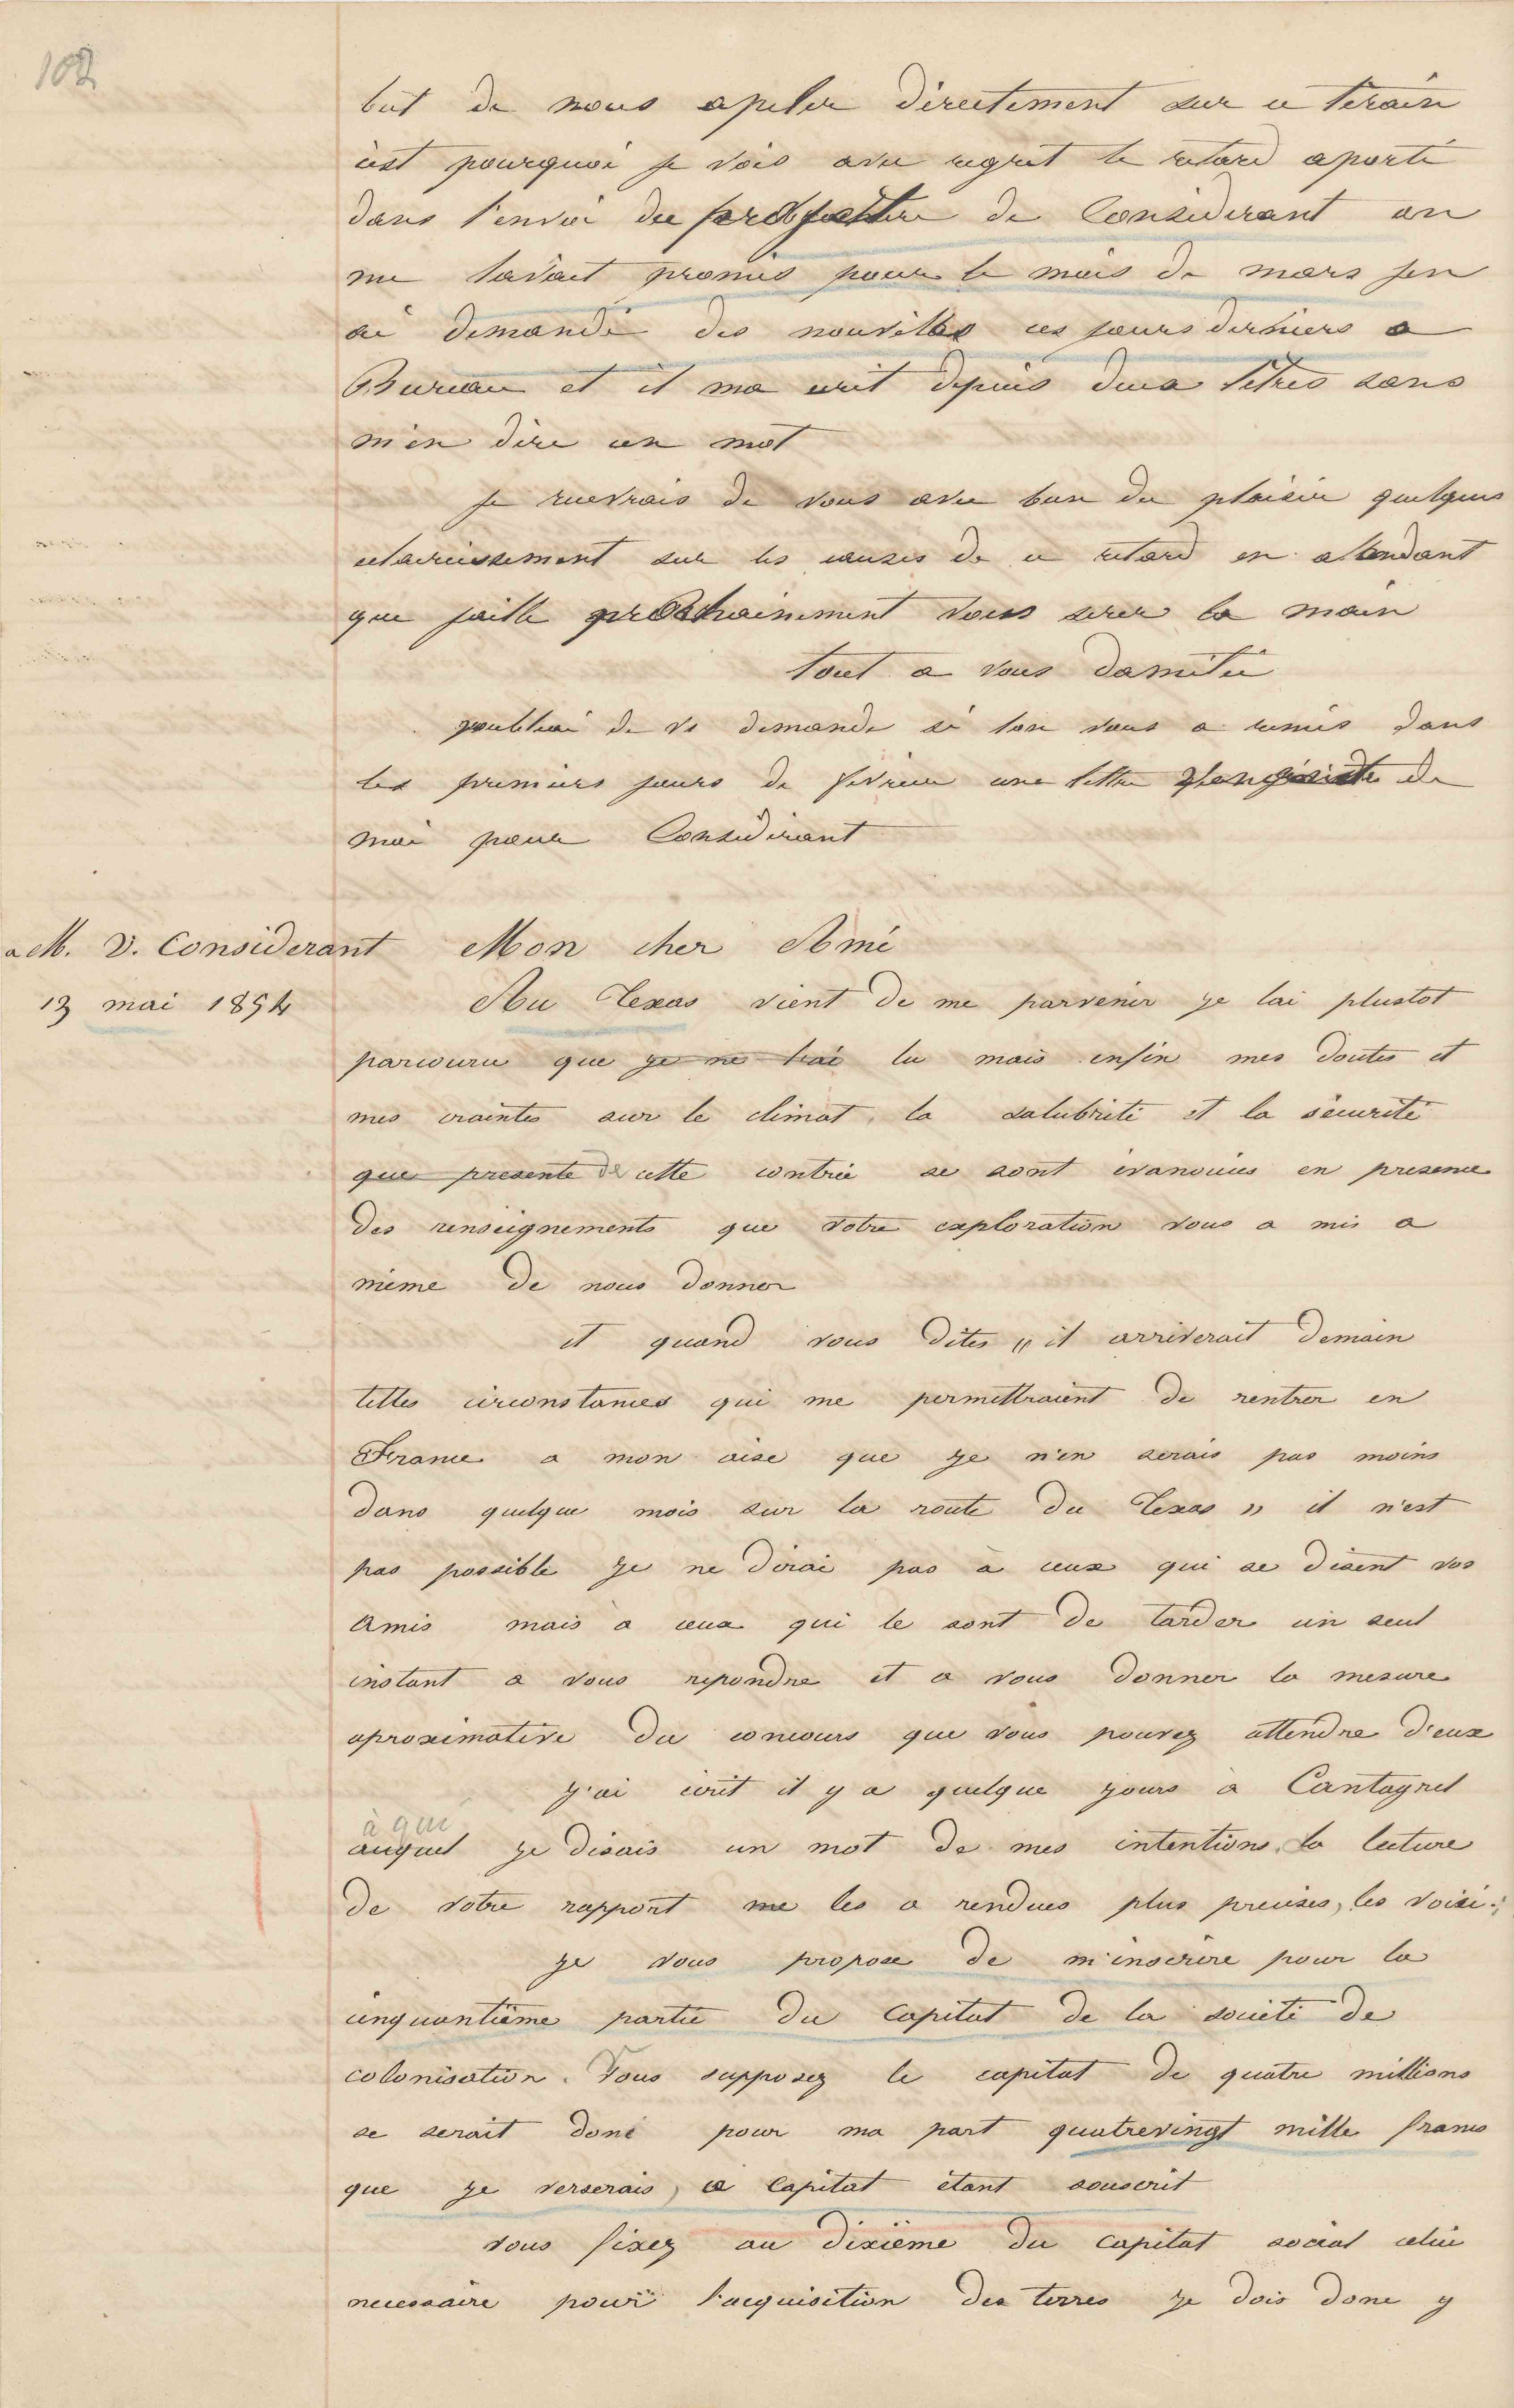 102
but de nous apeler directement sur ce terain
cest pourquoi je vois avec regret le retard aporté
dans l'envoi du prospectus de Considerant on
me lavait promis pour le mois de mars jen
ai demandé des nouvelles ces jours derniers a
Bureau et il ma ecrit depuis deux letres sans
m'en dire un mot
je recevrais de vous avec bien du plaisir quelques
eclaircissement sur les causes de ce retard en atendant
que jaille prochainement vous serer la main
tout a vous damitié
joubliai de vs demande si lon vous a remis dans
les premiers jours de fevrier une lettre de
moi pour Considerant
a M. V. Considerant
13 mai 1854
Mon cher Ami
Au Texas vient de me parvenir je lai plustot
parcouru que je ne lai lu mais enfin mes doutes et
mes craintes sur le climat, la salubrité et la sécurité
que presente de cette contrée se sont évanouies en presence
des renseignements que votre exploration vous a mis a
même de nous donner
et quand vous dites " il arriverait demain
telles circonstances qui me permettraient de rentrer en
France a mon aise que je n'en serais pas moins
dans quelque mois sur la route du Texas " il n'est
pas possible je ne dirai pas à ceux qui se disent vos
amis mais à ceux qui le sont de tarder un seul
instant a vous repondre et a vous donner la mesure
aproximative du concours que vous pouvez attendre d'eux
j'ai écrit il y a quelque jours a Cantagrel
à qui
auquel je disais un mot de mes intentions, la lecture
de votre rapport me les a rendues plus precises, les voici:
je vous propose de m'inscrire pour la
cinquantième partie du capital de la société de
colonisation. Vous supposez le capital de quatre millions
se serait donc pour ma part quatrevingt mille francs
que je verserais, ce capital étant souscrit
vous fixez au dixième du capital social celui
necessaire pour l'acquisition des terres je dois donc y